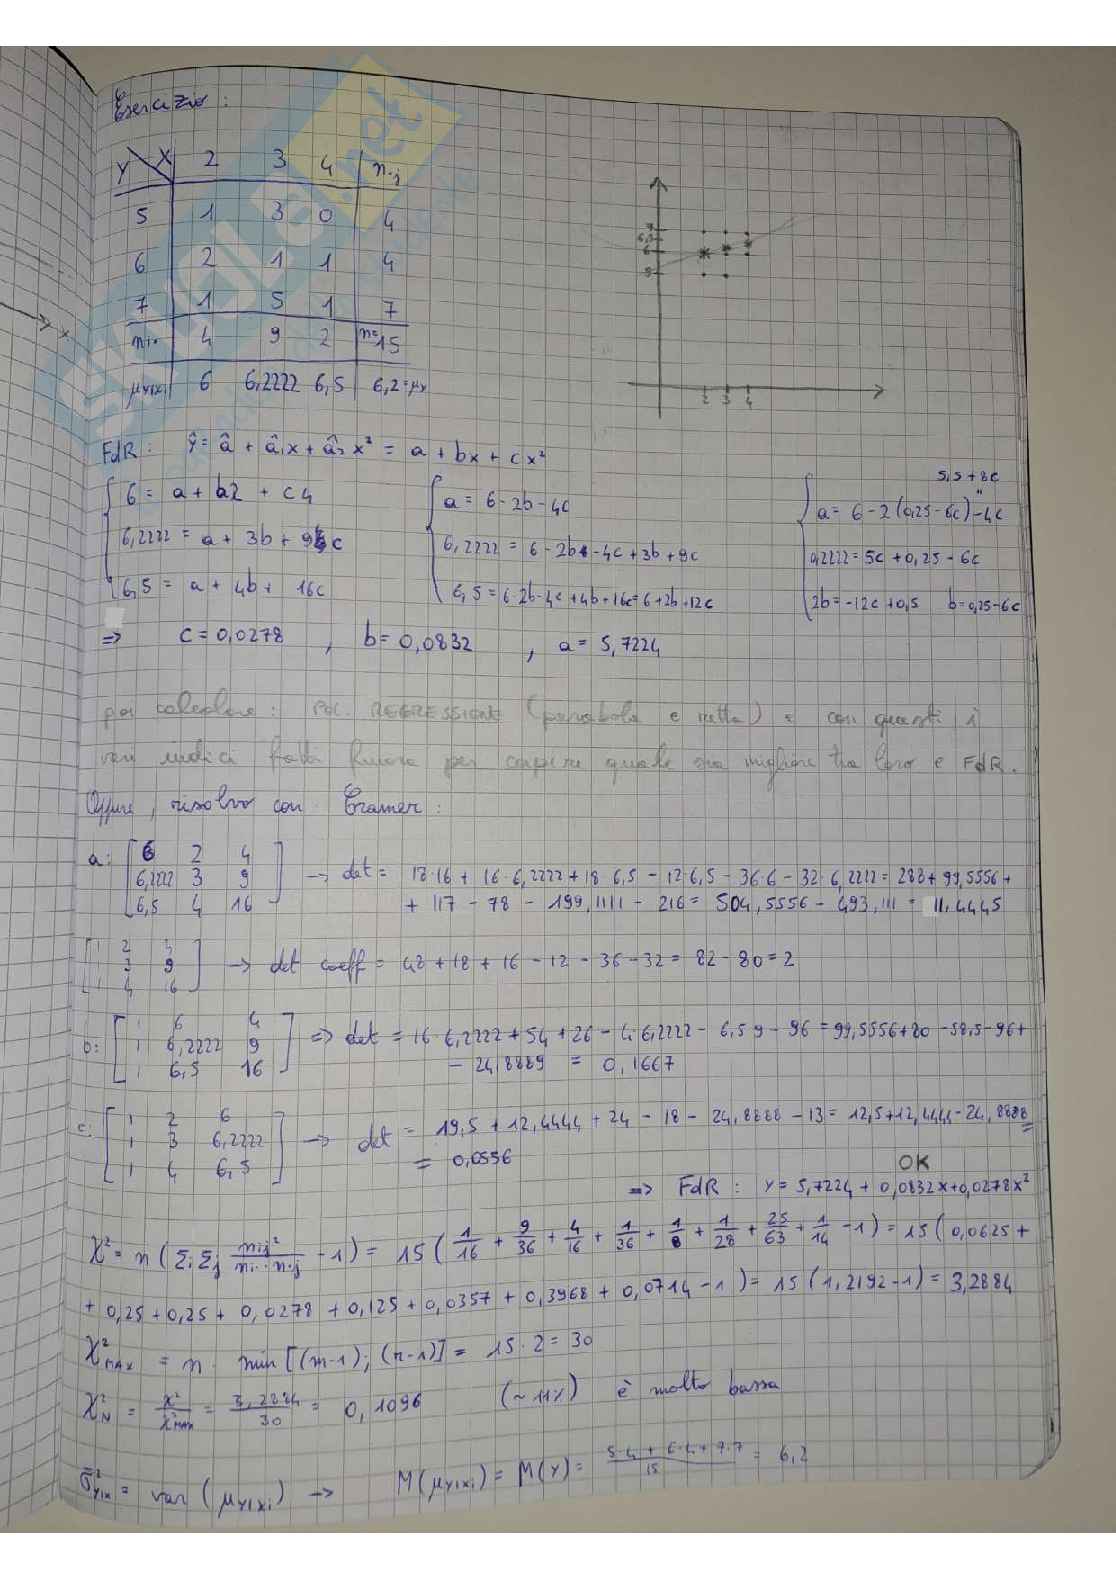 Esercizio :
Y X 2 3 4 n.j
5 1 3 0 4
6 2 1 1 4
7 1 5 1 7
ni. 4 9 2 n=15
μY|Xi 6 6,2222 6,5 6,2=μY
7
6,5
6
5
2 3 4
FdR: ŷ = â + â₁x + â₂x² = a + bx + cx²
6 = a + b2 + c4
6,2222 = a + 3b + 9c
6,5 = a + 4b + 16c
a = 6 - 2b - 4c
6,2222 = 6 - 2b - 4c + 3b + 9c
6,5 = 6 - 2b - 4c + 4b + 16c = 6 + 2b + 12c
5,5 + 8c
"
a = 6 - 2(0,25 - 6c) - 4c
0,2222 = 5c + 0,25 - 6c
2b = -12c + 0,5 b = 0,25 - 6c
=> c = 0,0278 , b = 0,0832 , a = 5,7224
poi calcolare: POL. REGRESSIONE (parabola e retta) e con questi i
vari indici fatti finora per capire quale sia migliore tra loro e FdR.
Oppure, risolvo con Cramer:
a: [6 2 4
6,2222 3 9
6,5 4 16] -> det = 18·16 + 16·6,2222 + 18·6,5 - 12·6,5 - 36·6 - 32·6,2222 = 288 + 99,5556 +
+ 117 - 78 - 199,1111 - 216 = 504,5556 - 493,111 = 11,4445
[1 2 4
1 3 9
1 4 16] -> det coeff = 48 + 18 + 16 - 12 - 36 - 32 = 82 - 80 = 2
b: [1 6 4
1 6,2222 9
1 6,5 16] => det = 16·6,2222 + 54 + 26 - 4·6,2222 - 6,5·9 - 96 = 99,5556 + 80 - 58,5 - 96 +
- 24,8889 = 0,1667
c: [1 2 6
1 3 6,2222
1 4 6,5] -> det = 19,5 + 12,4444 + 24 - 18 - 24,8888 - 13 = 12,5 + 12,4444 - 24,8888
= 0,0556
OK
=> FdR : Y = 5,7224 + 0,0832x + 0,0278x²
χ² = n (Σi Σj nij²/ni.·n.j - 1) = 15 (1/16 + 9/36 + 4/16 + 1/36 + 1/8 + 1/28 + 25/63 + 1/14 - 1) = 15 (0,0625 +
+ 0,25 + 0,25 + 0,0278 + 0,125 + 0,0357 + 0,3968 + 0,0714 - 1) = 15 (1,2192 - 1) = 3,2884
χ²MAX = n · min [(m-1); (r-1)] = 15·2 = 30
χ²N = χ²/χ²MAX = 3,2884/30 = 0,1096 (~11%) è molto bassa
σ̄²Y|X = var (μY|Xi) -> M(μY|Xi) = M(Y) = 5·4 + 6·4 + 7·7/15 = 6,2